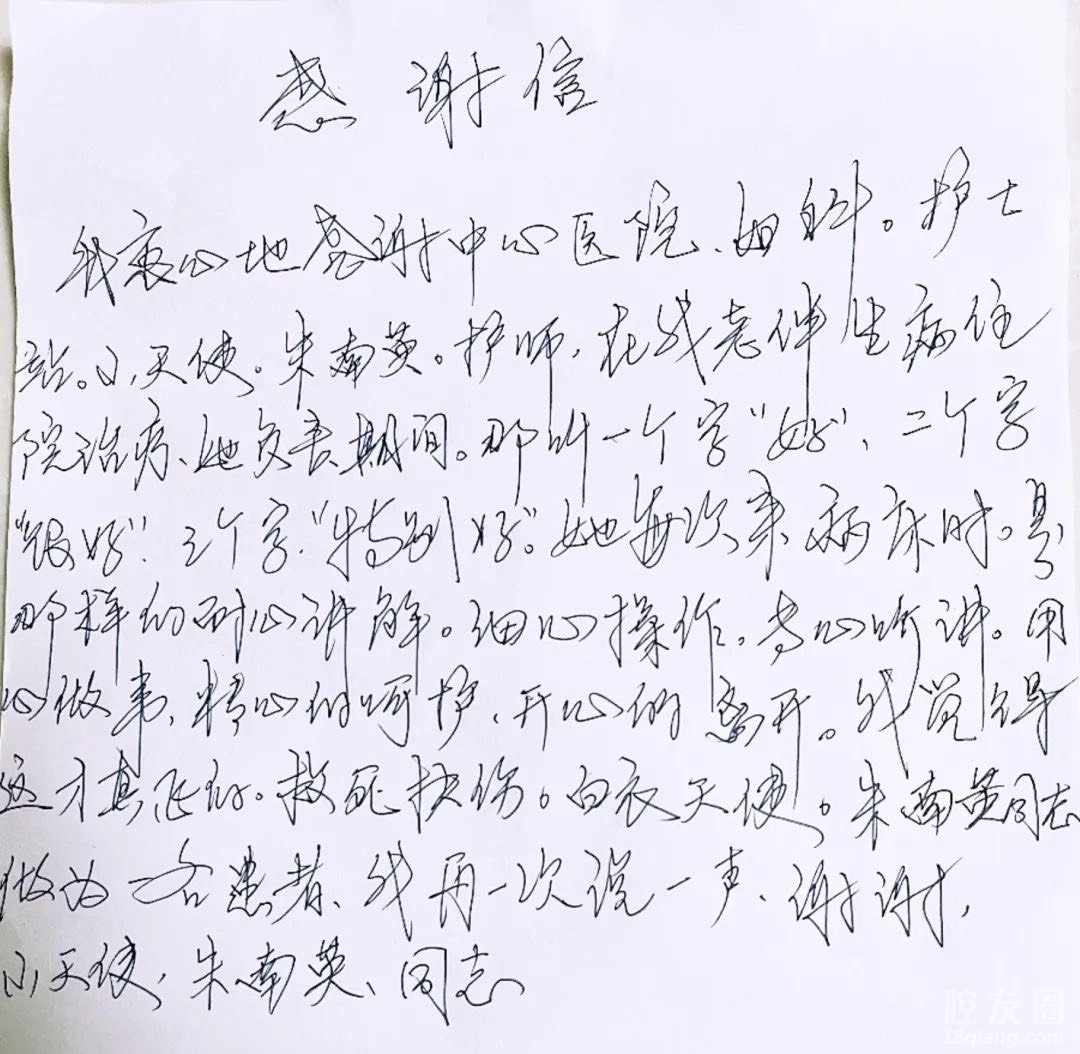 感谢信
我衷心地感谢中心医院、妇科。护士
站。小天使。朱南英。护师,在我老伴生病住
院治疗、她负责期间。那叫一个字“好”、二个字
“很好”.三个字.“特别好”。她每次来病床时。是
那样的耐心讲解。细心操作。专心听讲。用
心做事、精心的呵护、开心的离开。我觉得
这才真正的。救死扶伤。白衣天使。朱南英同志
做为一名患者、我再一次说一声、谢谢,
小天使,朱南英、同志
腔友圈
18qiang.com